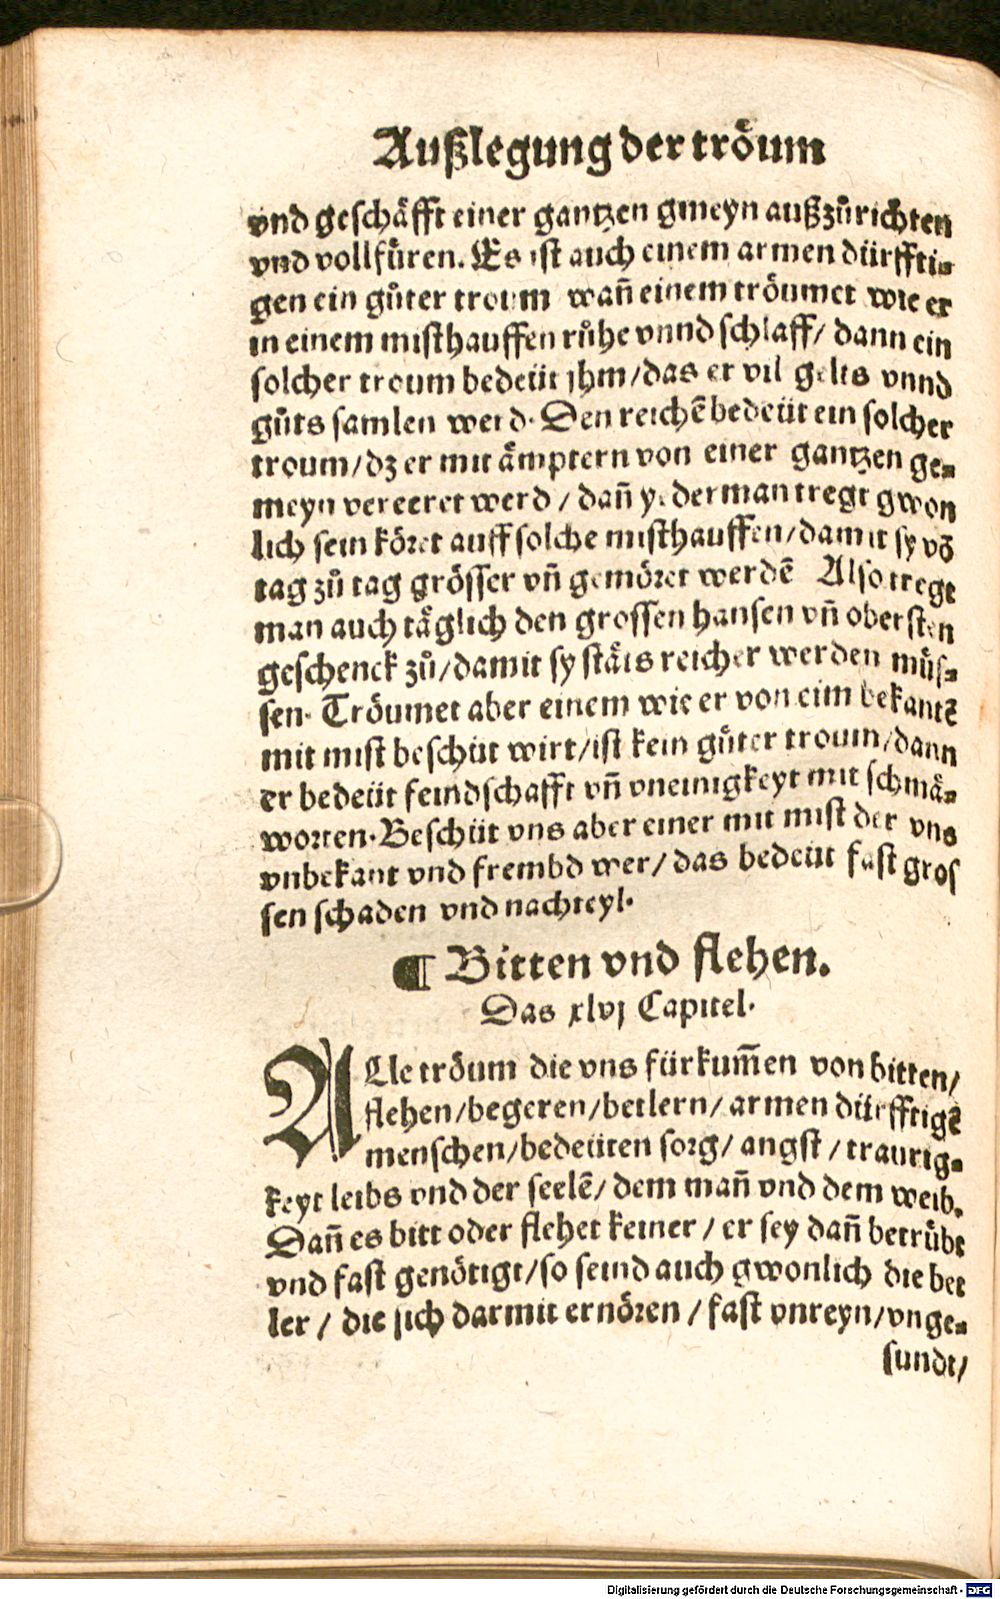 Außlegung der tröum
vnd geschäfft einer gantzen gmeyn außzůrichten
vnd vollfüren. Es ist auch einem armen dürffti⸗
gen ein gůter troum wañ einem tröumet wie er
in einem misthauffen růhe vnnd schlaff/ dann ein
solcher troum bedeüt jhm/das er vil gelts vnnd
gůts samlen werd. Den reichẽ bedeüt ein solcher
troum/dz er mit ämptern von einer gantzen ge⸗
meyn vereeret werd / dañ yederman tregt gwon
lich sein köret auff solche misthauffen/damit sy võ
tag zů tag grösser vñ gemöret werdẽ Also tregt
man auch täglich den grossen hansen vñ obersten
geschenck zů/damit sy stäts reicher werden müs⸗
sen. Tröumet aber einem wie er von eim bekantẽ
mit mist beschüt wirt/ist kein gůter troum/dann
er bedeüt feindschafft vñ vneinigkeyt mit schmä⸗
worten. Beschüt vns aber einer mit mist der vns
vnbekant vnd frembd wer/ das bedeüt fast gros
sen schaden vnd nachteyl.
¶ Bitten vnd flehen.
Das xlvj Capitel.
ALle tröum die vns fürkum̃en von bitten/
flehen/begeren/betlern/ armen dürfftigẽ
menschen/bedeüten sorg/ angst / traurig⸗
keyt leibs vnd der seelẽ/ dem mañ vnd dem weib.
Dañ es bitt oder flehet keiner / er sey dañ betrübt
vnd fast genötigt/so seind auch gwonlich die bet
ler / die sich darmit ernören / fast vnreyn/vnge⸗
sundt/
Digitalisierung gefördert durch die Deutsche Forschungsgemeinschaft - DFG